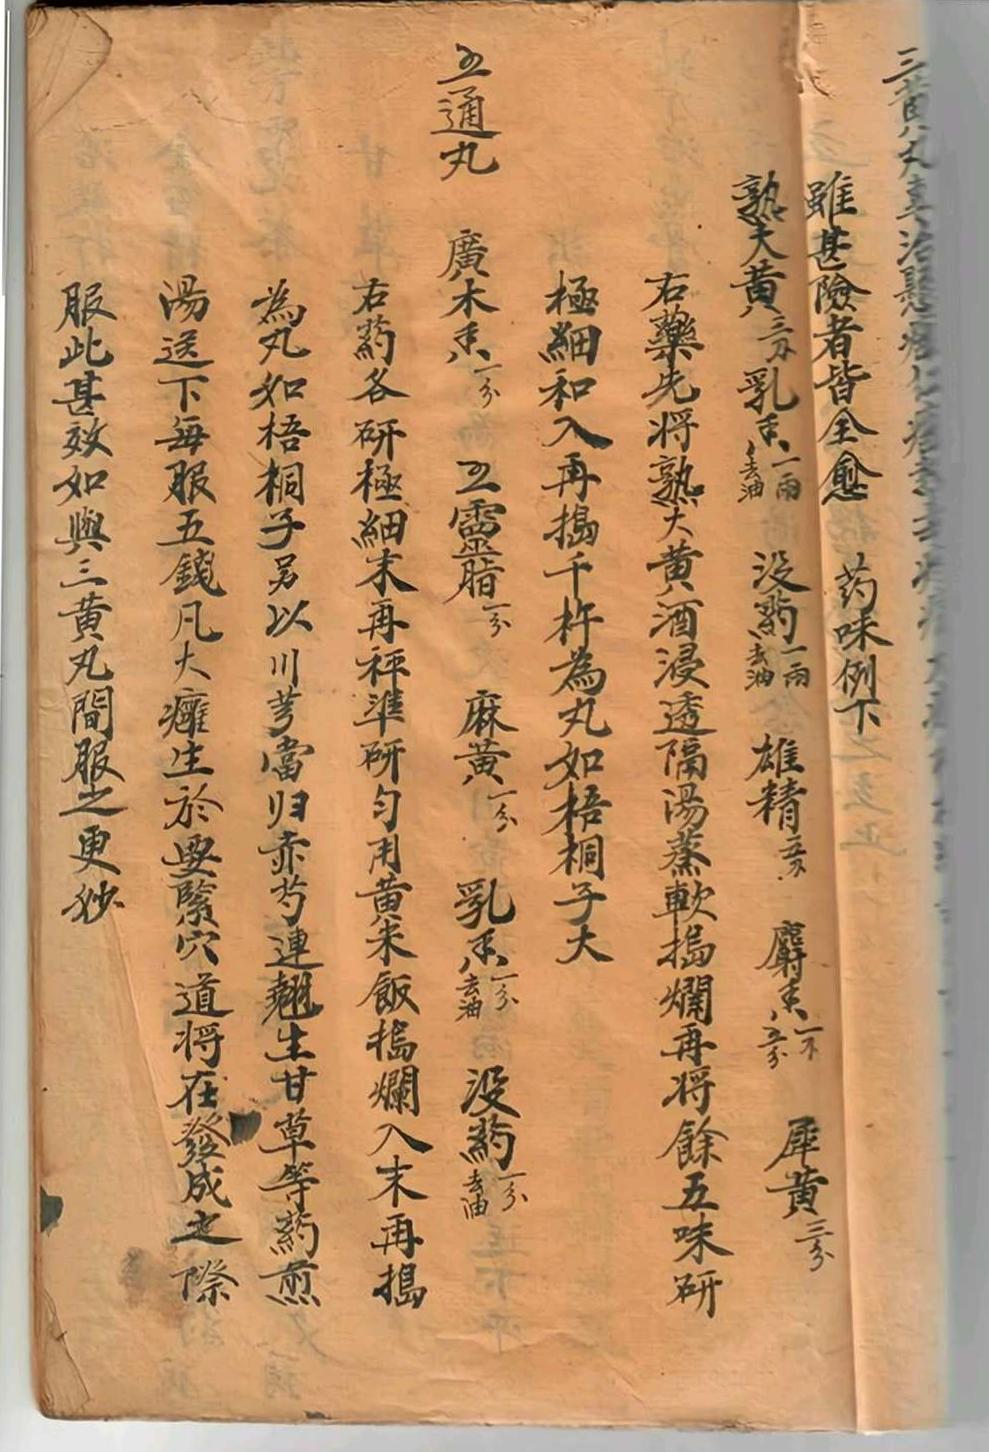 三黃丸專治懸癰
雖甚險者皆全愈 药味例下
熟大黄三 乳香一兩去油 没药一兩去油 雄精五 麝香一五分 犀黄三分
右藥先将熟大黄酒浸透隔湯蒸軟搗爛再将餘五味研
極細和入再搗千杵為丸如梧桐子大
五通丸 廣木香一分 五靈脂一分 麻黄一分 乳香一分去油 没药一分去油
右药各研極細末再秤準研匀用黄米飯搗爛入末再搗
為丸如梧桐子另以川芎當归赤芍連翹生甘草等药煎
湯送下每服五錢凡大癰生於要緊穴道将在發成之際
服此甚效如與三黄丸間服之更妙